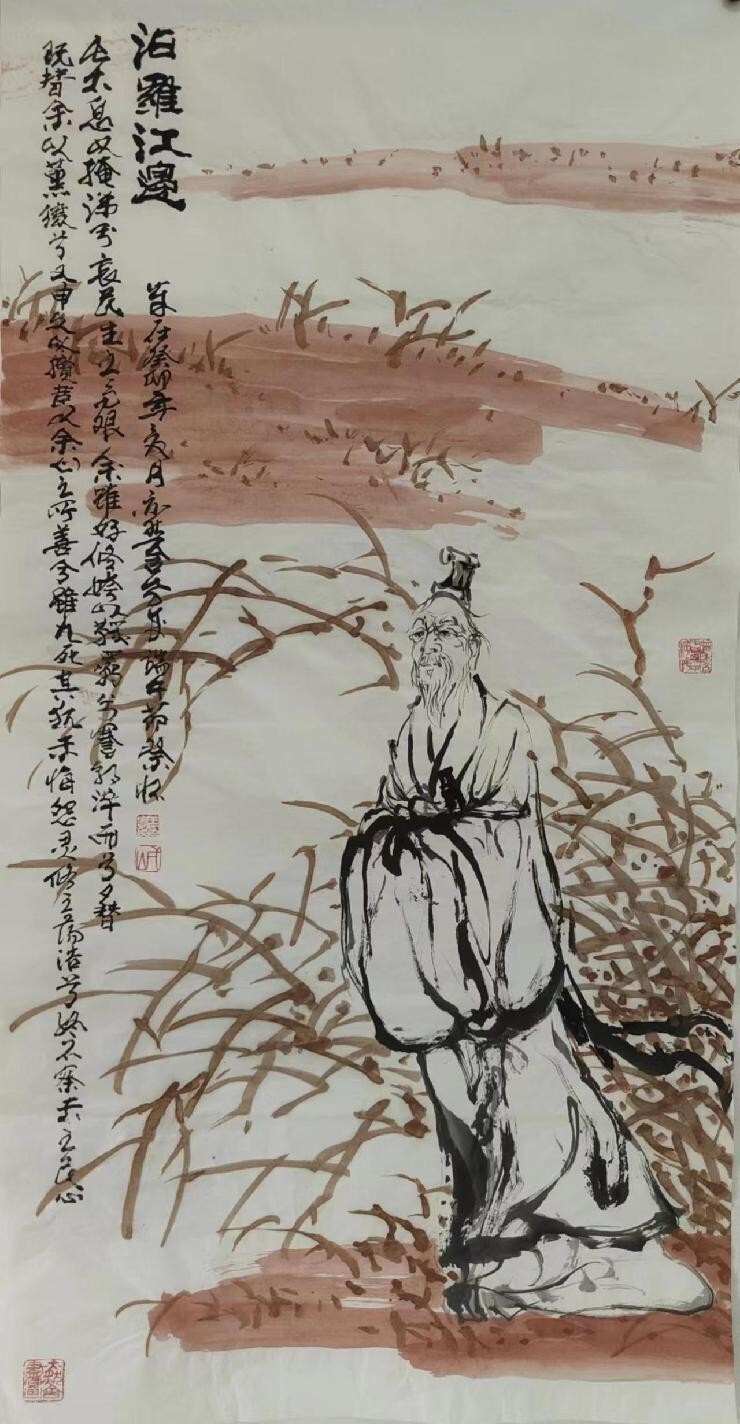 汨羅江邊
长太息以掩涕兮哀民生之多艰余雖好修姱以鞿羈兮謇朝誶而夕替
既替余以蕙纕兮又申之以攬茞以余心之所善兮雖九死其犹未悔怨灵修之蕩浩兮终不察夫之民心
在癸卯年夏月端午節祭怀